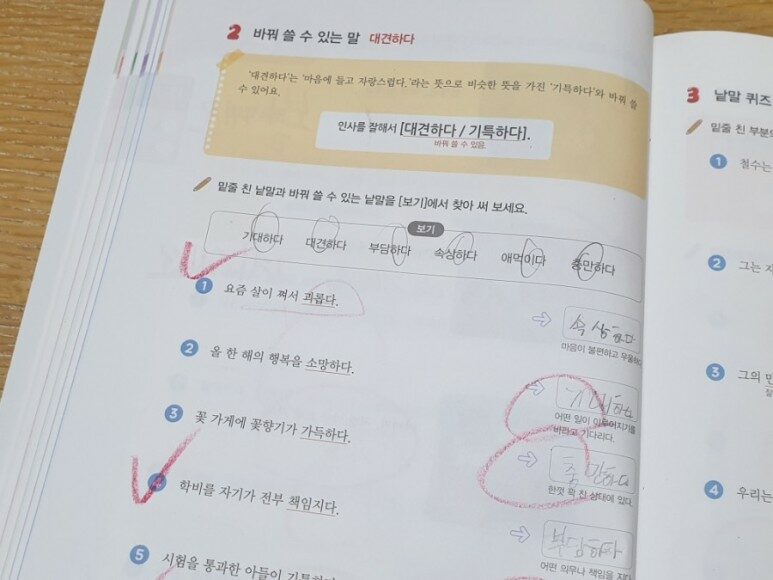 2 바꿔 쓸 수 있는 말 대견하다
'대견하다'는 '마음에 들고 자랑스럽다.'라는 뜻으로 비슷한 뜻을 가진 '기특하다'와 바꿔 쓸
수 있어요.
인사를 잘해서 [대견하다 / 기특하다].
바꿔 쓸 수 있음.
밑줄 친 낱말과 바꿔 쓸 수 있는 낱말을 [보기]에서 찾아 써 보세요.
보기
기대하다 대견하다 부담하다 속상하다 애먹이다 충만하다
1 요즘 살이 쪄서 괴롭다.
속상하다
마음이 불편하고 우울하다
2 올 한 해의 행복을 소망하다.
기대하다
어떤 일이 이루어지기를
바라고 기다리다.
3 꽃 가게에 꽃향기가 가득하다.
충만하다
한껏 꽉 찬 상태에 있다.
4 학비를 자기가 전부 책임지다.
부담하다
어떤 의무나 책임을 지다
5 시험을 통과한 아들이
3 낱말 퀴즈
밑줄 친 부분
1 철수는
2 그는
3 그의
4 우리는